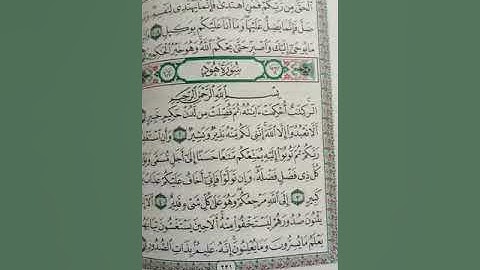 الْحَقُّ مِن رَّبِّكُمْ فَمَنِ اهْتَدَىٰ فَإِنَّمَا يَهْتَدِي لِنَفْسِهِ
ضَلَّ فَإِنَّمَا يَضِلُّ عَلَيْهَا وَمَا أَنَا عَلَيْكُم بِوَكِيلٍ
مَا يُوحَىٰ إِلَيْكَ وَاصْبِرْ حَتَّىٰ يَحْكُمَ اللَّهُ وَهُوَ خَيْرُ الْحَاكِمِينَ
سُورَةُ هُودٍ
بِسْمِ اللَّهِ الرَّحْمَٰنِ الرَّحِيمِ
الر كِتَابٌ أُحْكِمَتْ آيَاتُهُ ثُمَّ فُصِّلَتْ مِن لَّدُنْ حَكِيمٍ خَبِيرٍ
أَلَّا تَعْبُدُوا إِلَّا اللَّهَ إِنَّنِي لَكُم مِّنْهُ نَذِيرٌ وَبَشِيرٌ وَأَنِ اسْتَغْفِرُوا
رَبَّكُمْ ثُمَّ تُوبُوا إِلَيْهِ يُمَتِّعْكُم مَّتَاعًا حَسَنًا إِلَىٰ أَجَلٍ مُّسَمًّى وَيُؤْتِ
كُلَّ ذِي فَضْلٍ فَضْلَهُ وَإِن تَوَلَّوْا فَإِنِّي أَخَافُ عَلَيْكُمْ عَذَابَ
كَبِيرٍ إِلَى اللَّهِ مَرْجِعُكُمْ وَهُوَ عَلَىٰ كُلِّ شَيْءٍ قَدِيرٌ أَلَا
يَثْنُونَ صُدُورَهُمْ لِيَسْتَخْفُوا مِنْهُ أَلَا حِينَ يَسْتَغْشُونَ ثِيَابَهُمْ
يَعْلَمُ مَا يُسِرُّونَ وَمَا يُعْلِنُونَ إِنَّهُ عَلِيمٌ بِذَاتِ الصُّدُورِ
٢٢١